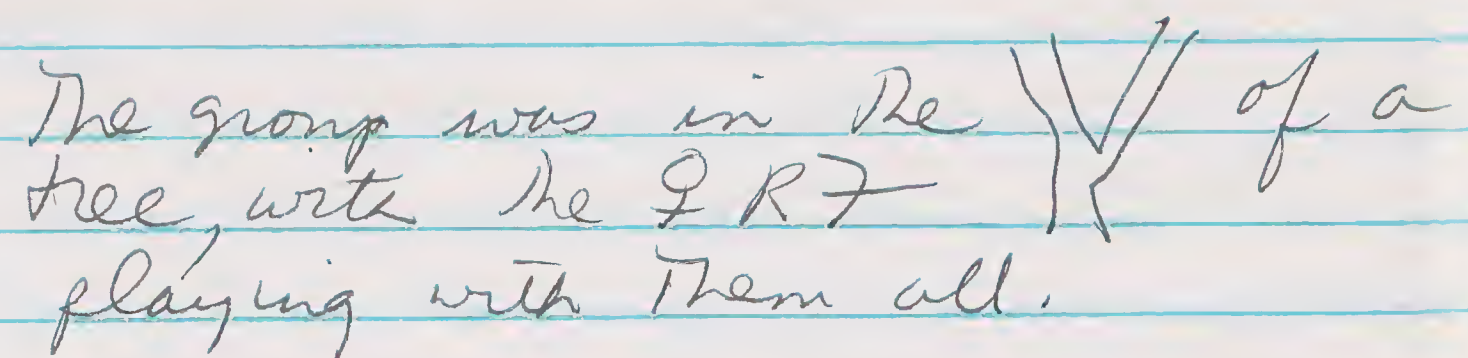 The group was in the Y of a
tree, with the ♀ RF
playing with them all.